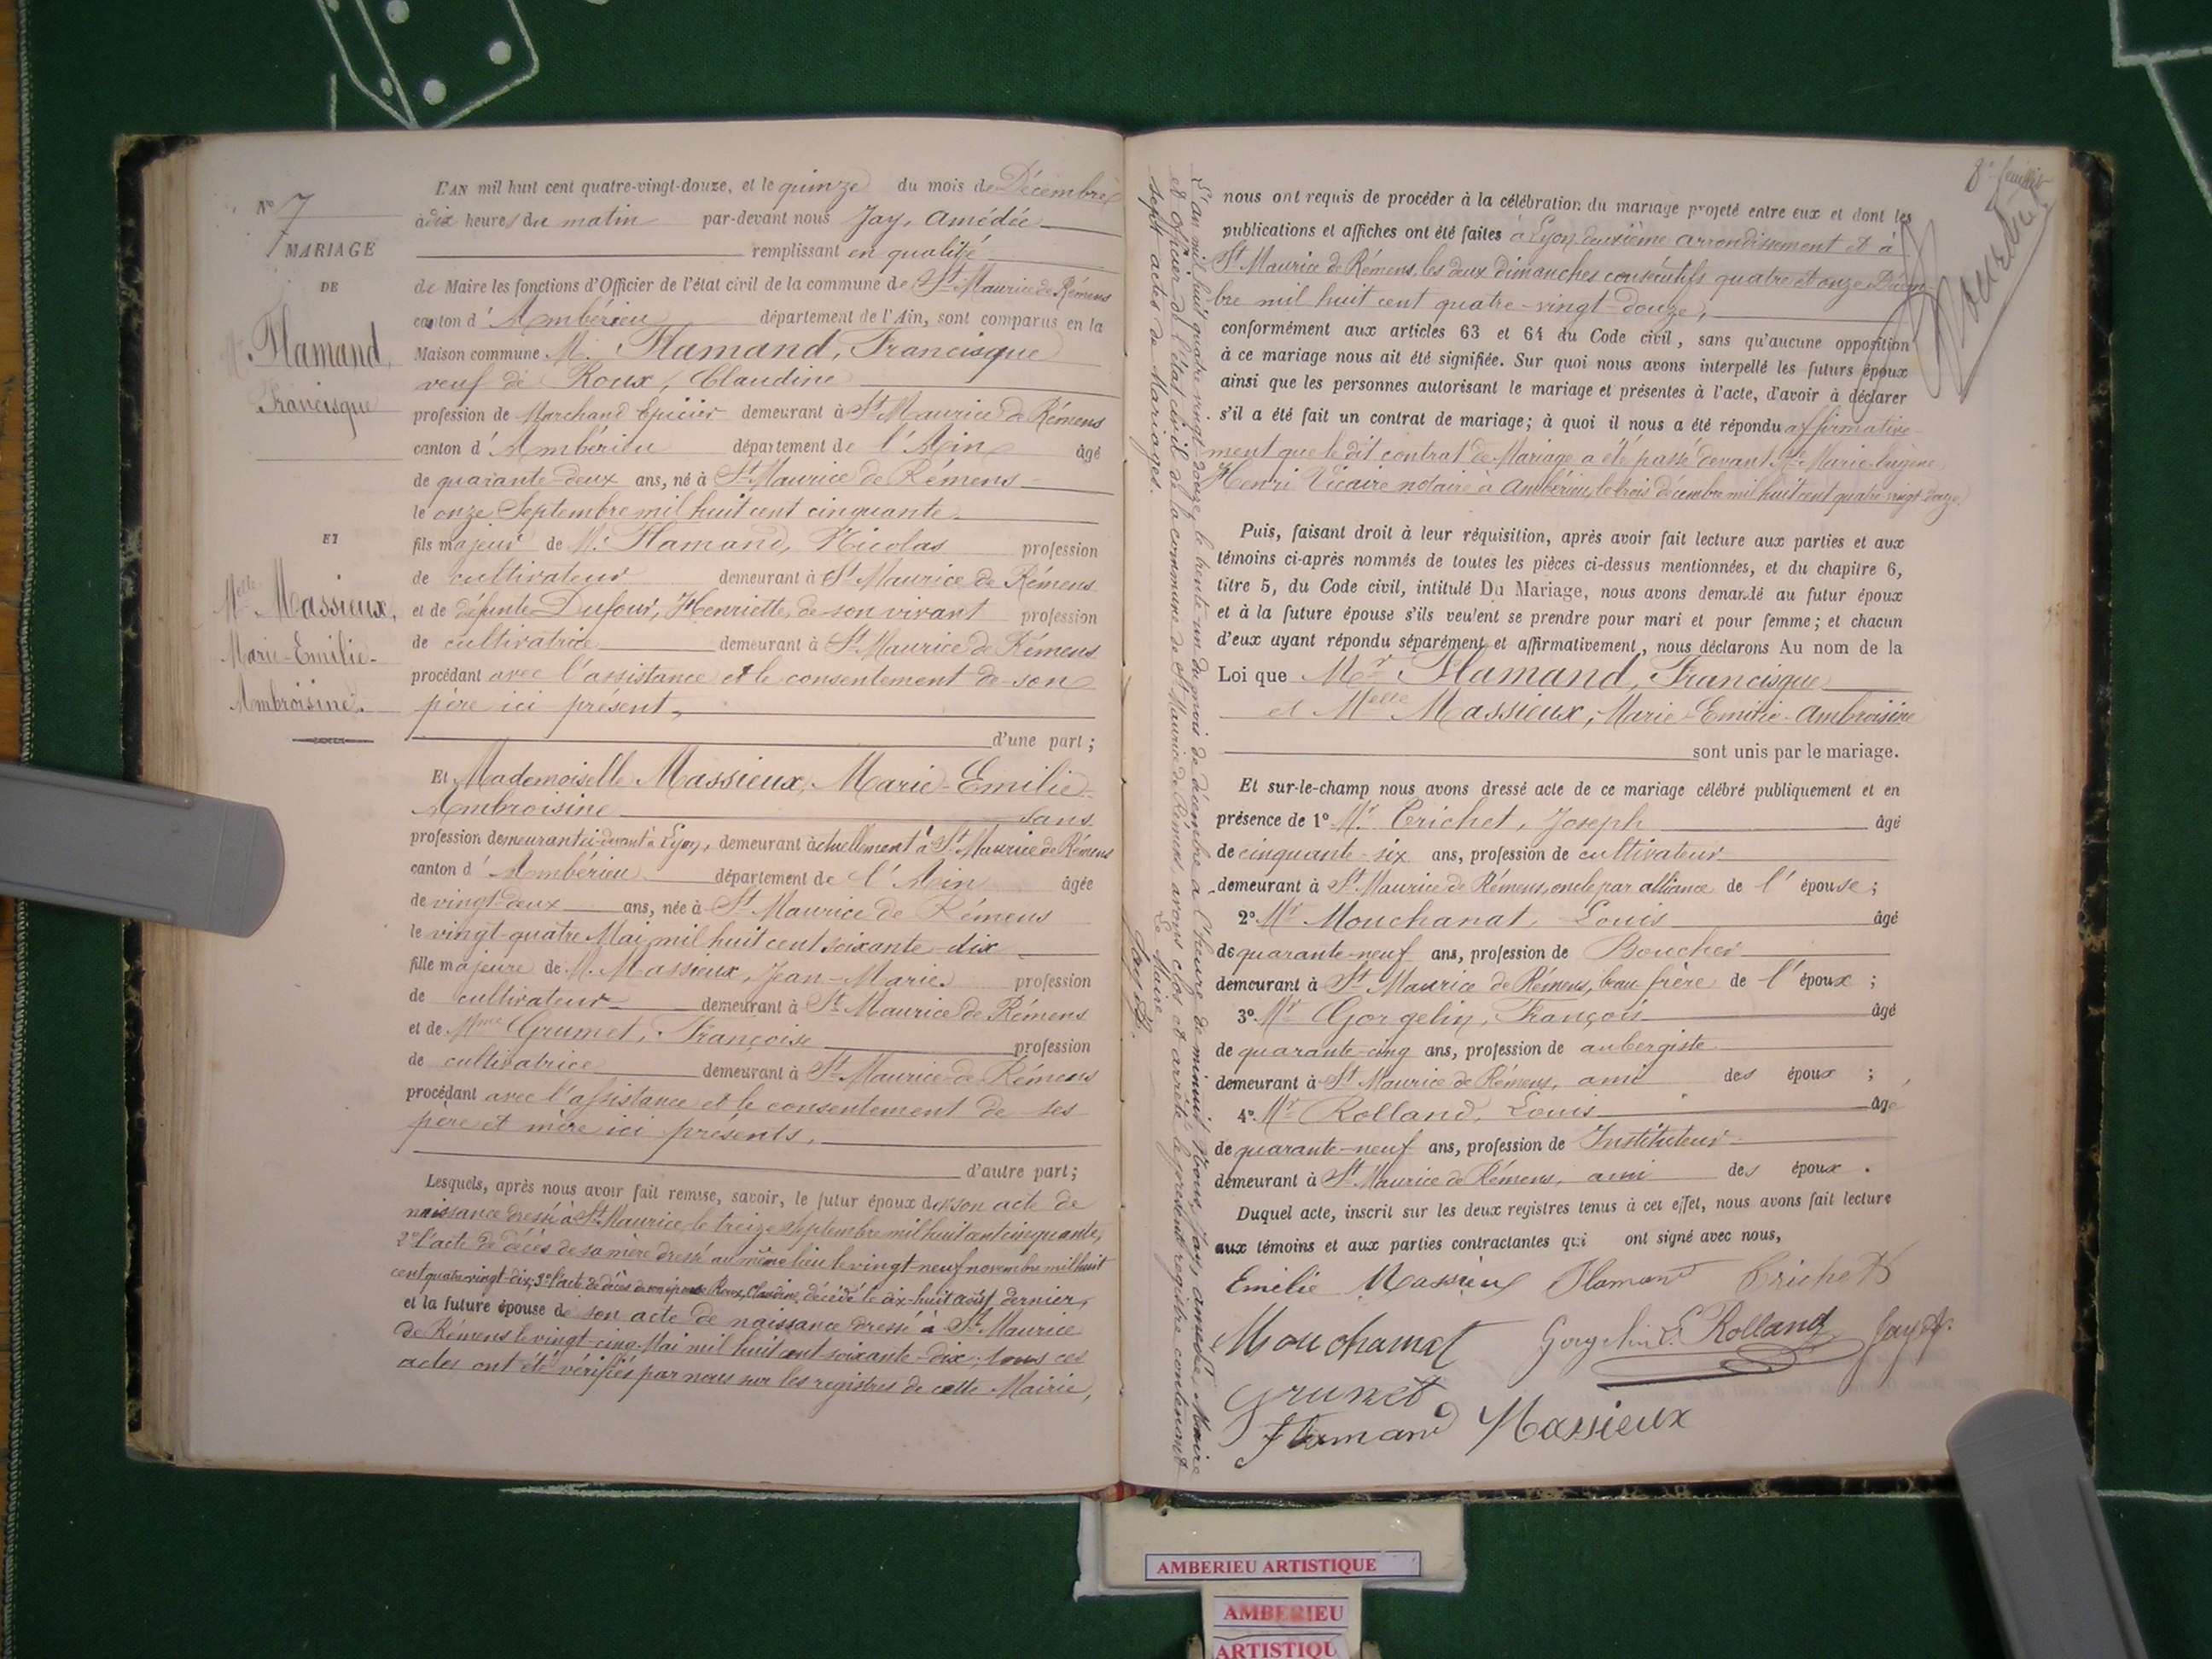 N° 7
MARIAGE
DE
Mr Flamand,
Francisque
ET
Melle Massieux,
Marie-Emilie-
Ambroisine.
L'AN mil huit cent quatre-vingt-douze, et le quinze du mois de Décembre
à dix heures du matin par-devant nous Jay, Amédée
remplissant en qualité
de Maire les fonctions d'Officier de l'état civil de la commune de St Maurice de Rémens
canton d'Ambérieu département de l'Ain, sont comparus en la
Maison commune M. Flamand, Francisque
veuf de Roux, Claudine
profession de Marchand Epicier demeurant à St Maurice de Rémens
canton d'Ambérieu département de l'Ain âgé
de quarante-deux ans, né à St Maurice de Rémens
le onze Septembre mil huit cent cinquante
fils majeur de Mr Flamand, Nicolas profession
de cultivateur demeurant à St Maurice de Rémens
et de défunte Dufour, Henriette, de son vivant profession
de cultivatrice demeurant à St Maurice de Rémens
procédant avec l'assistance et le consentement de son
père ici présent,
d'une part;
Et Mademoiselle Massieux, Marie-Emilie-
Ambroisine sans
profession demeurant ci-devant à Lyon, demeurant actuellement à St Maurice de Rémens
canton d'Ambérieu département de l'Ain âgée
de vingt-deux ans, née à St Maurice de Rémens
le vingt-quatre Mai mil huit cent soixante-dix
fille majeure de M. Massieux, Jean-Marie profession
de cultivateur demeurant à St Maurice de Rémens
et de Mme Grumet, Françoise profession
de cultivatrice demeurant à St Maurice de Rémens
procédant avec l'assistance et le consentement de ses
père et mère ici présents,
d'autre part;
Lesquels, après nous avoir fait remise, savoir, le futur époux de son acte de
naissance dressé à St Maurice le treize Septembre mil huit cent cinquante,
2° l'acte de décès de sa mère dressé au même lieu le vingt-neuf novembre mil huit
cent quatre-vingt-dix, 3° l'acte de décès de son épouse Roux, Claudine, décédé le dix-huit août dernier,
et la future épouse de son acte de naissance dressé à St Maurice
de Rémens le vingt-cinq Mai mil huit cent soixante-dix; tous ces
actes ont été vérifiés par nous sur les registres de cette Mairie,
8e feuillet
nous ont requis de procéder à la célébration du mariage projeté entre eux et dont les
publications et affiches ont été faites à Lyon deuxième arrondissement et à
St Maurice de Rémens, les deux dimanches consécutifs quatre et onze Décem-
bre mil huit cent quatre-vingt-douze,
conformément aux articles 63 et 64 du Code civil, sans qu'aucune opposition
à ce mariage nous ait été signifiée. Sur quoi nous avons interpellé les futurs époux
ainsi que les personnes autorisant le mariage et présentes à l'acte, d'avoir à déclarer
s'il a été fait un contrat de mariage; à quoi il nous a été répondu affirmative-
ment que le dit contrat de Mariage a été passé devant Me Marie Eugène
Henri Vicaire notaire à Ambérieu, le trois décembre mil huit cent quatre-vingt-douze
Puis, faisant droit à leur réquisition, après avoir fait lecture aux parties et aux
témoins ci-après nommés de toutes les pièces ci-dessus mentionnées, et du chapitre 6,
titre 5, du Code civil, intitulé Du Mariage, nous avons demandé au futur époux
et à la future épouse s'ils veulent se prendre pour mari et pour femme; et chacun
d'eux ayant répondu séparément et affirmativement, nous déclarons Au nom de la
Loi que Mr Flamand, Francisque
et Melle Massieux, Marie-Emilie-Ambroisine
sont unis par le mariage.
Et sur-le-champ nous avons dressé acte de ce mariage célébré publiquement et en
présence de 1° Mr Crichet, Joseph âgé
de cinquante-six ans, profession de cultivateur
demeurant à St Maurice de Rémens, oncle par alliance de l'épouse;
2° Mr Mouchanat, Louis âgé
de quarante-neuf ans, profession de Boucher
demeurant à St Maurice de Rémens, beau frère de l'époux;
3° Mr Gorgelin, François âgé
de quarante-cinq ans, profession de aubergiste
demeurant à St Maurice de Rémens, ami des époux;
4° Mr Rolland, Louis âgé
de quarante-neuf ans, profession de Instituteur
demeurant à St Maurice de Rémens, ami des époux.
Duquel acte, inscrit sur les deux registres tenus à cet effet, nous avons fait lecture
aux témoins et aux parties contractantes qui ont signé avec nous,
Emélie Massieux Flamand Crichet
Mouchanat Gorgelin L. Rolland Jay A.
Grumet
Flamand Massieux
L'an mil huit quatre vingt-douze, le trente-un du mois de décembre à l'heure de minuit, Nous, Jay, amédée, Maire
et officier de l'état civil de la commune de St Maurice de Rémens, avons clos et arrêté le présent registre contenant
sept actes de Mariages.
Le Maire
Jay A.
AMBERIEU ARTISTIQUE
AMBERIEU
ARTISTIQU